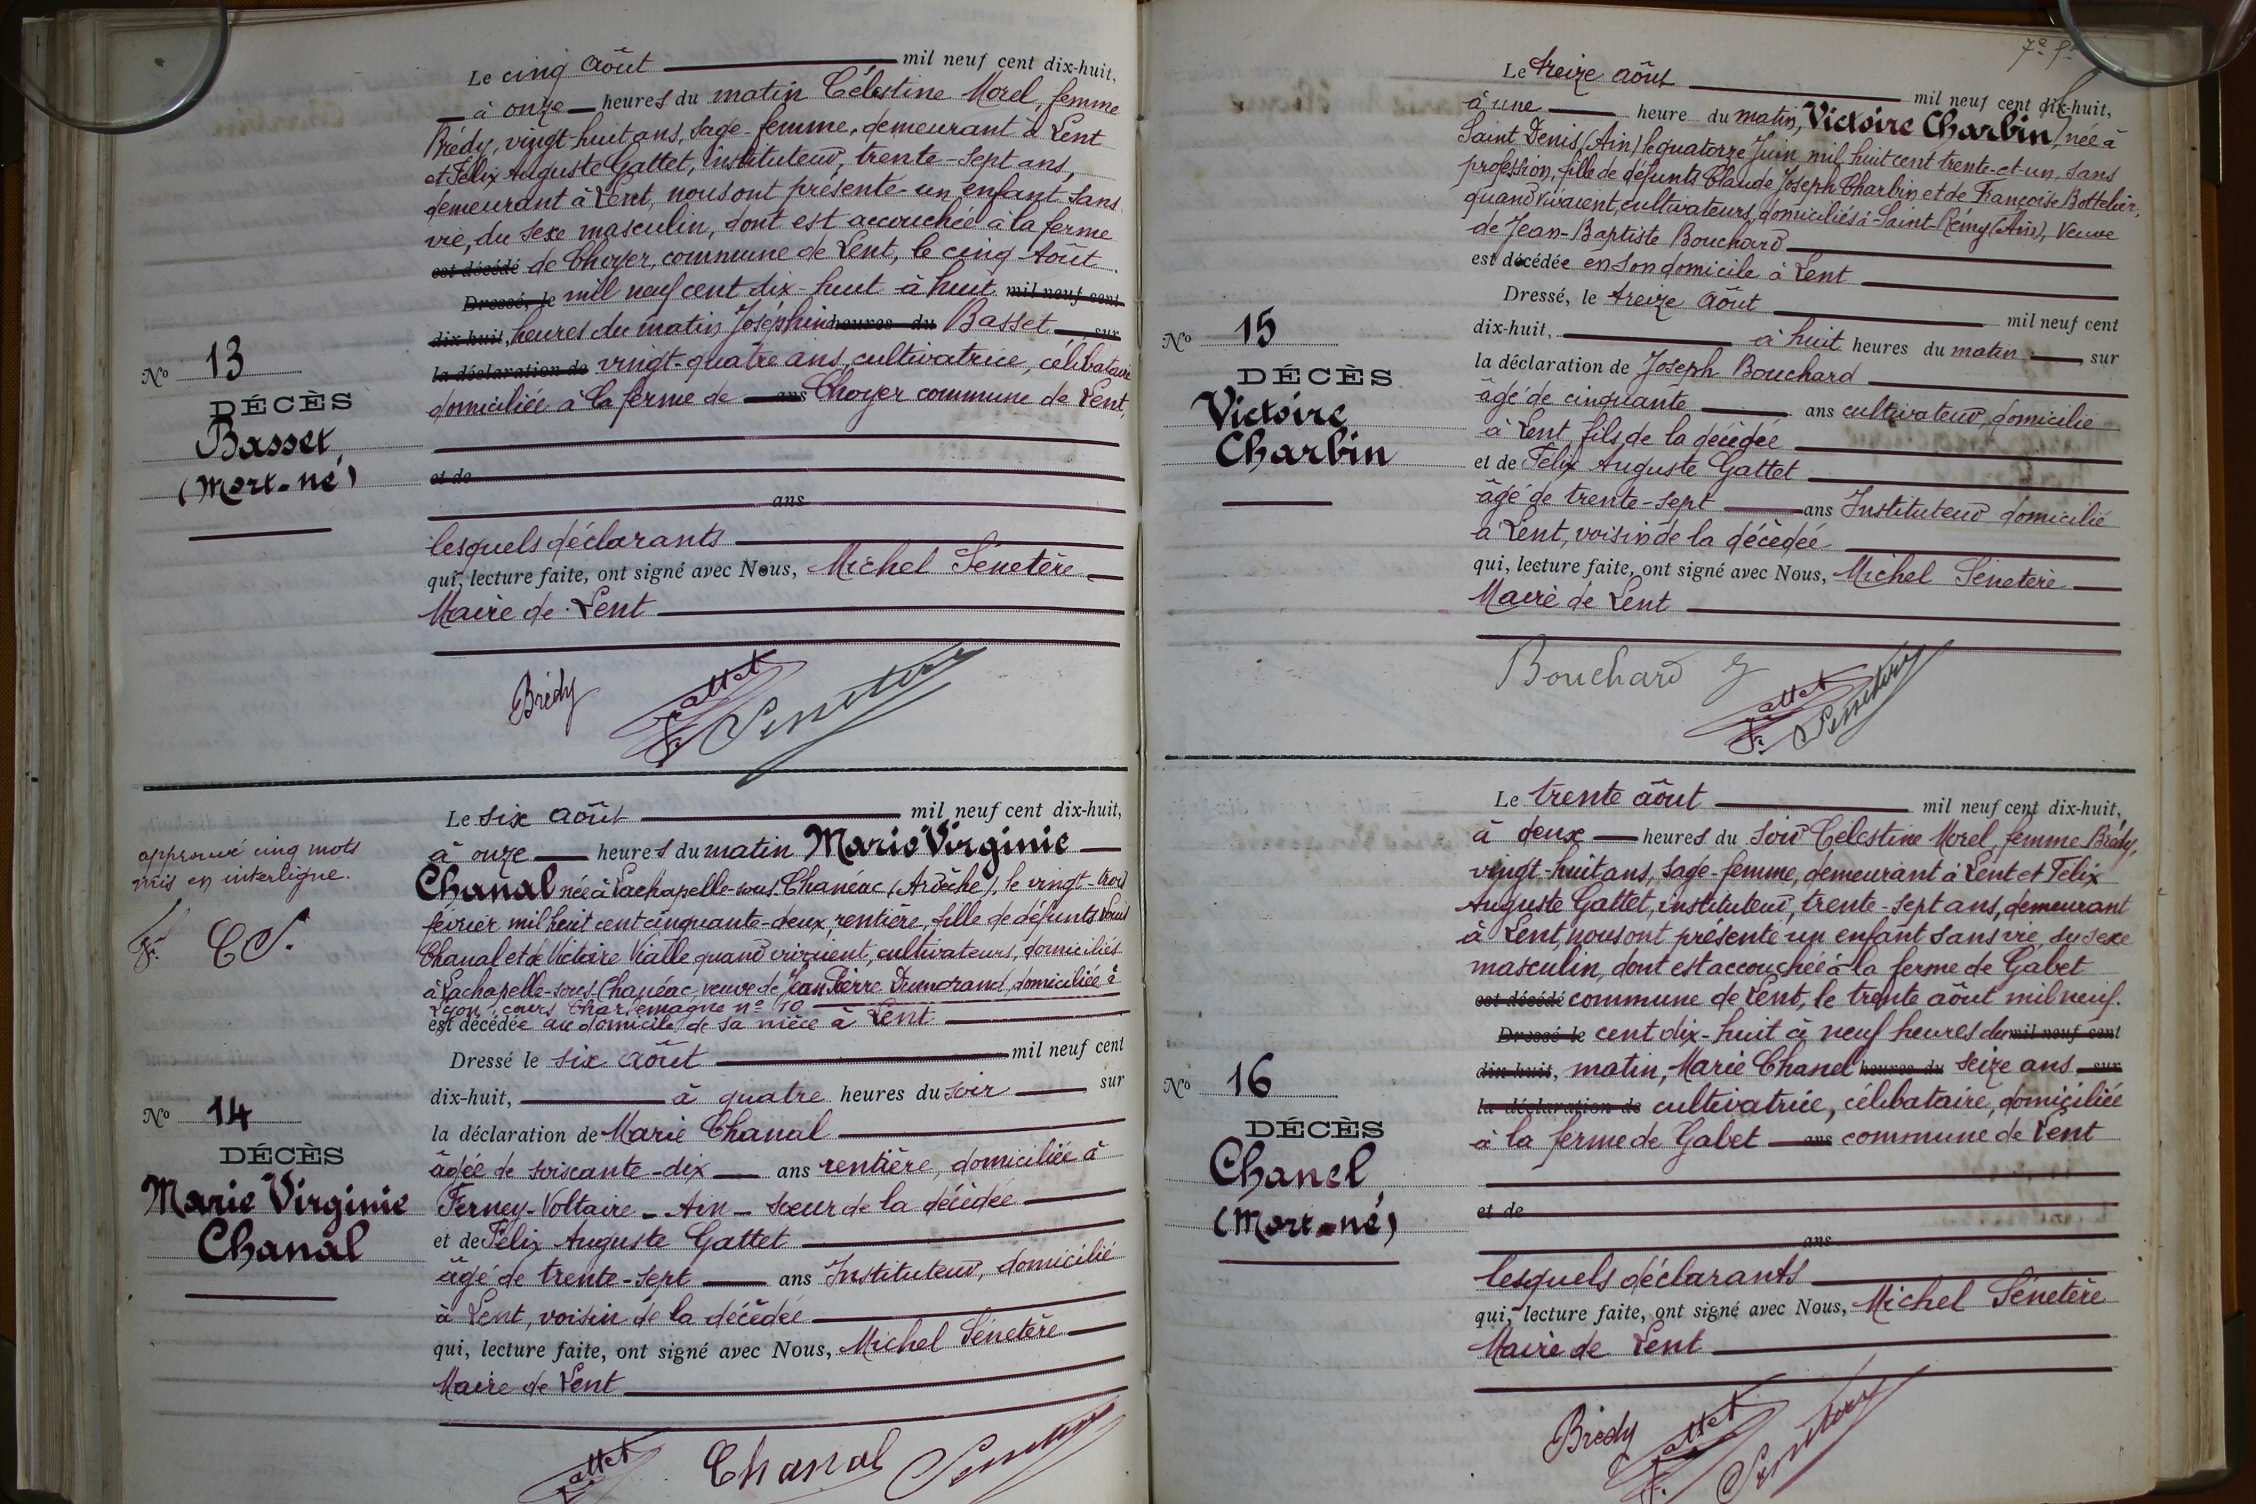 Le cinq août mil neuf cent dix-huit,
à onze heures du matin Célestine Morel, femme
Brédy, vingt-huit ans, sage-femme, demeurant à Lent
et Félix Auguste Gattet, instituteur, trente-sept ans,
demeurant à Lent, nous ont présenté un enfant sans
vie, du sexe masculin, dont est accouchée à la ferme
est décédé de Choyer, commune de Lent, le cinq Août
Dressé, le mil neuf cent dix-huit à huit mil neuf cent
dix-huit, heures du matin Joséphine heures du Basset sur
la déclaration de vingt-quatre ans, cultivatrice, célibataire
domiciliée à la ferme de ans Choyer commune de Lent,
et de
ans
lesquels déclarants
qui, lecture faite, ont signé avec Nous, Michel Sénetère
Maire de Lent
No 13
DÉCÈS
Basset,
(Mort-né)
Brédy F. Gattet Senetère
approuvé cinq mots
mis en interligne.
Le six août mil neuf cent dix-huit,
à onze heures du matin Marie Virginie
Chanal née à Lachapelle-sous-Chanéac (Ardèche), le vingt-trois
février mil huit cent cinquante-deux, rentière, fille de défunts Louis
Chanal et de Victoire Vialle quand vivaient, cultivateurs, domiciliés
à Lachapelle-sous-Chanéac, veuve de Jean Pierre Dumorand, domiciliée à
Lyon, cours Charlemagne no 10
est décédée au domicile de sa nièce à Lent
Dressé le six août mil neuf cent
dix-huit, à quatre heures du soir sur
la déclaration de Marie Chanal
âgée de soixante-dix ans rentière, domiciliée à
Ferney-Voltaire - Ain - sœur de la décédée
et de Félix Auguste Gattet
âgé de trente-sept ans Instituteur, domicilié
à Lent, voisin de la décédée
qui, lecture faite, ont signé avec Nous, Michel Sénetère
Maire de Lent
No 14
DÉCÈS
Marie Virginie
Chanal
F. Gattet Chanal Senetère
7e f.
Le treize août mil neuf cent dix-huit,
à une heure du matin, Victoire Charbin, née à
Saint Denis, (Ain) le quatorze Juin mil huit cent trente-et-un, sans
profession, fille de défunts Claude Joseph Charbin et de Françoise Bottelier,
quand vivaient, cultivateurs, domiciliés à Saint-Rémy (Ain), veuve
de Jean-Baptiste Bouchard
est décédée en son domicile à Lent
Dressé, le treize août mil neuf cent
dix-huit, à huit heures du matin sur
la déclaration de Joseph Bouchard
âgé de cinquante ans cultivateur, domicilié
à Lent, fils de la décédée
et de Félix Auguste Gattet
âgé de trente-sept ans Instituteur domicilié
à Lent, voisin de la décédée
qui, lecture faite, ont signé avec Nous, Michel Sénetère
Maire de Lent
No 15
DÉCÈS
Victoire
Charbin
Bouchard J F. Gattet Senetère
Le trente août mil neuf cent dix-huit,
à deux heures du soir Célestine Morel, femme Brédy,
vingt-huit ans, sage-femme, demeurant à Lent et Félix
Auguste Gattet, instituteur, trente-sept ans, demeurant
à Lent, nous ont présenté un enfant sans vie, du sexe
masculin, dont est accouchée à la ferme de Gabet
est décédé commune de Lent, le trente août mil neuf
Dressé le cent dix-huit à neuf heures du mil neuf cent
dix-huit, matin, Marie Chanel heures du seize ans sur
la déclaration de cultivatrice, célibataire, domiciliée
à la ferme de Gabet ans commune de Lent
et de
ans
lesquels déclarants
qui, lecture faite, ont signé avec Nous, Michel Sénetère
Maire de Lent
No 16
DÉCÈS
Chanel,
(Mort-né)
Brédy F. Gattet Senetère